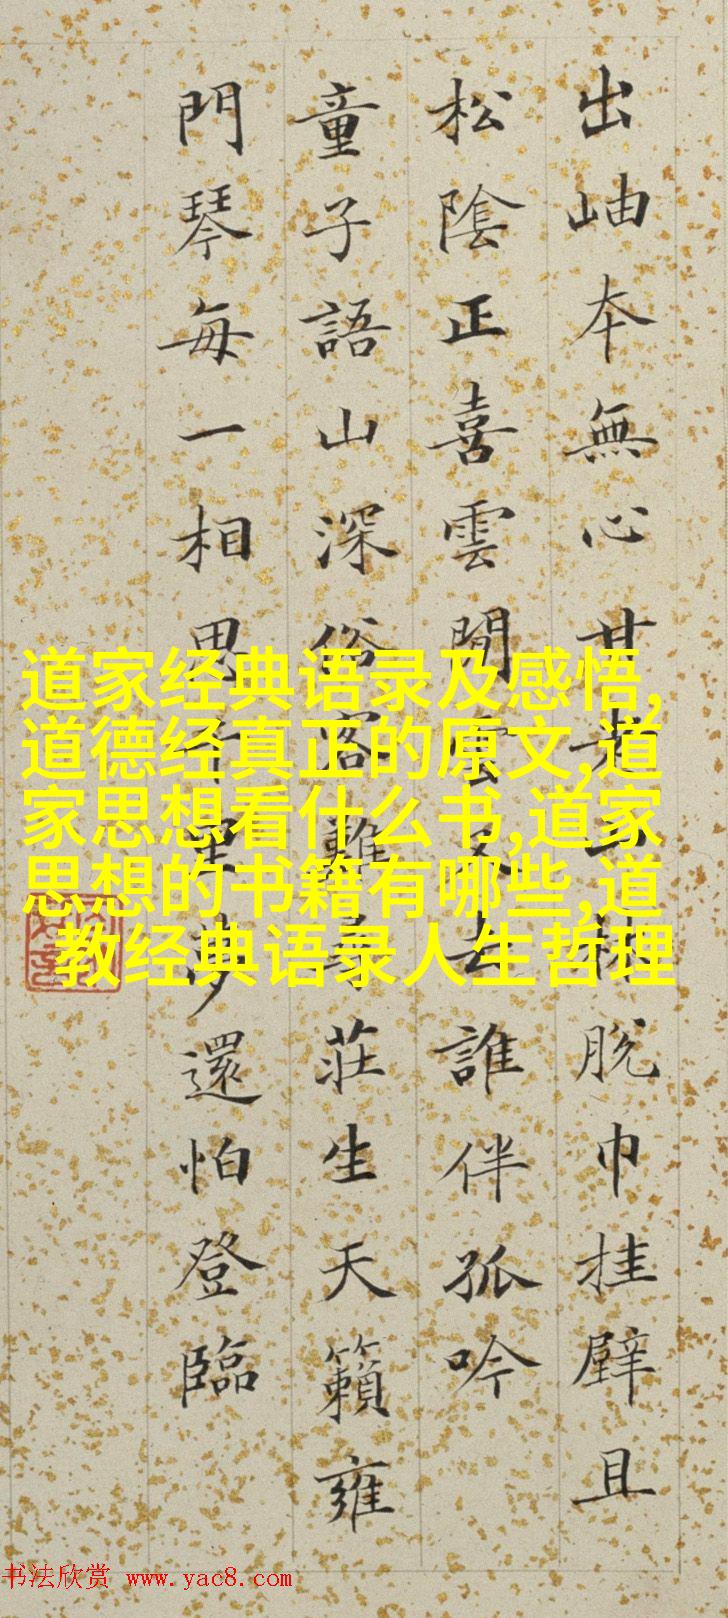 出岫本無心甘老林脫巾挂壁且
松陰正喜雲閒雲又去誰伴孤吟
童子語山深俗客難尋莊生天籟雍
門琴每一相思千里夢還怕登臨
道家经典语录及感悟,
道德经真正的原文,道
家思想看什么书,道家
思想的书籍有哪些,道
教经典语录人生哲理
书法欣赏 www.yac8.com